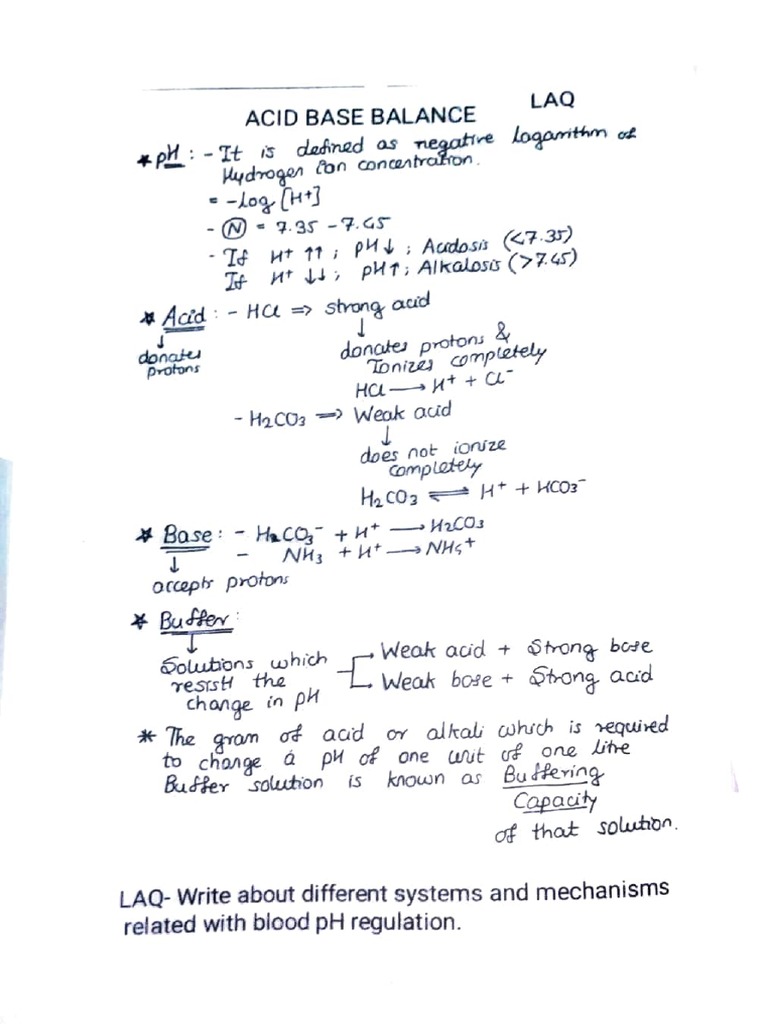 LAQ
ACID BASE BALANCE
* pH : - It is defined as negative logarithm of
Hydrogen Ion concentration.
= -Log [H+]
- (N) = 7.35 - 7.45
- If H+ ↑↑ ; pH↓ ; Acidosis (<7.35)
If H+ ↓↓ ; pH↑ ; Alkalosis (>7.45)
* Acid : - HCl ⇒ strong acid
↓ ↓
donates protons
donates protons &
Ionizes completely
HCl → H+ + Cl-
- H2CO3 ⇒ Weak acid
↓
does not ionize
completely
H2CO3 ⇌ H+ + HCO3-
* Base : - H2CO3- + H+ → H2CO3
- NH3 + H+ → NH4+
↓
accepts protons
* Buffer :
↓
Solutions which
resist the
change in pH
Weak acid + Strong base
Weak base + Strong acid
* The gram of acid or alkali which is required
to change a pH of one unit of one litre
Buffer solution is known as Buffering
Capacity
of that solution.
LAQ- Write about different systems and mechanisms
related with blood pH regulation.